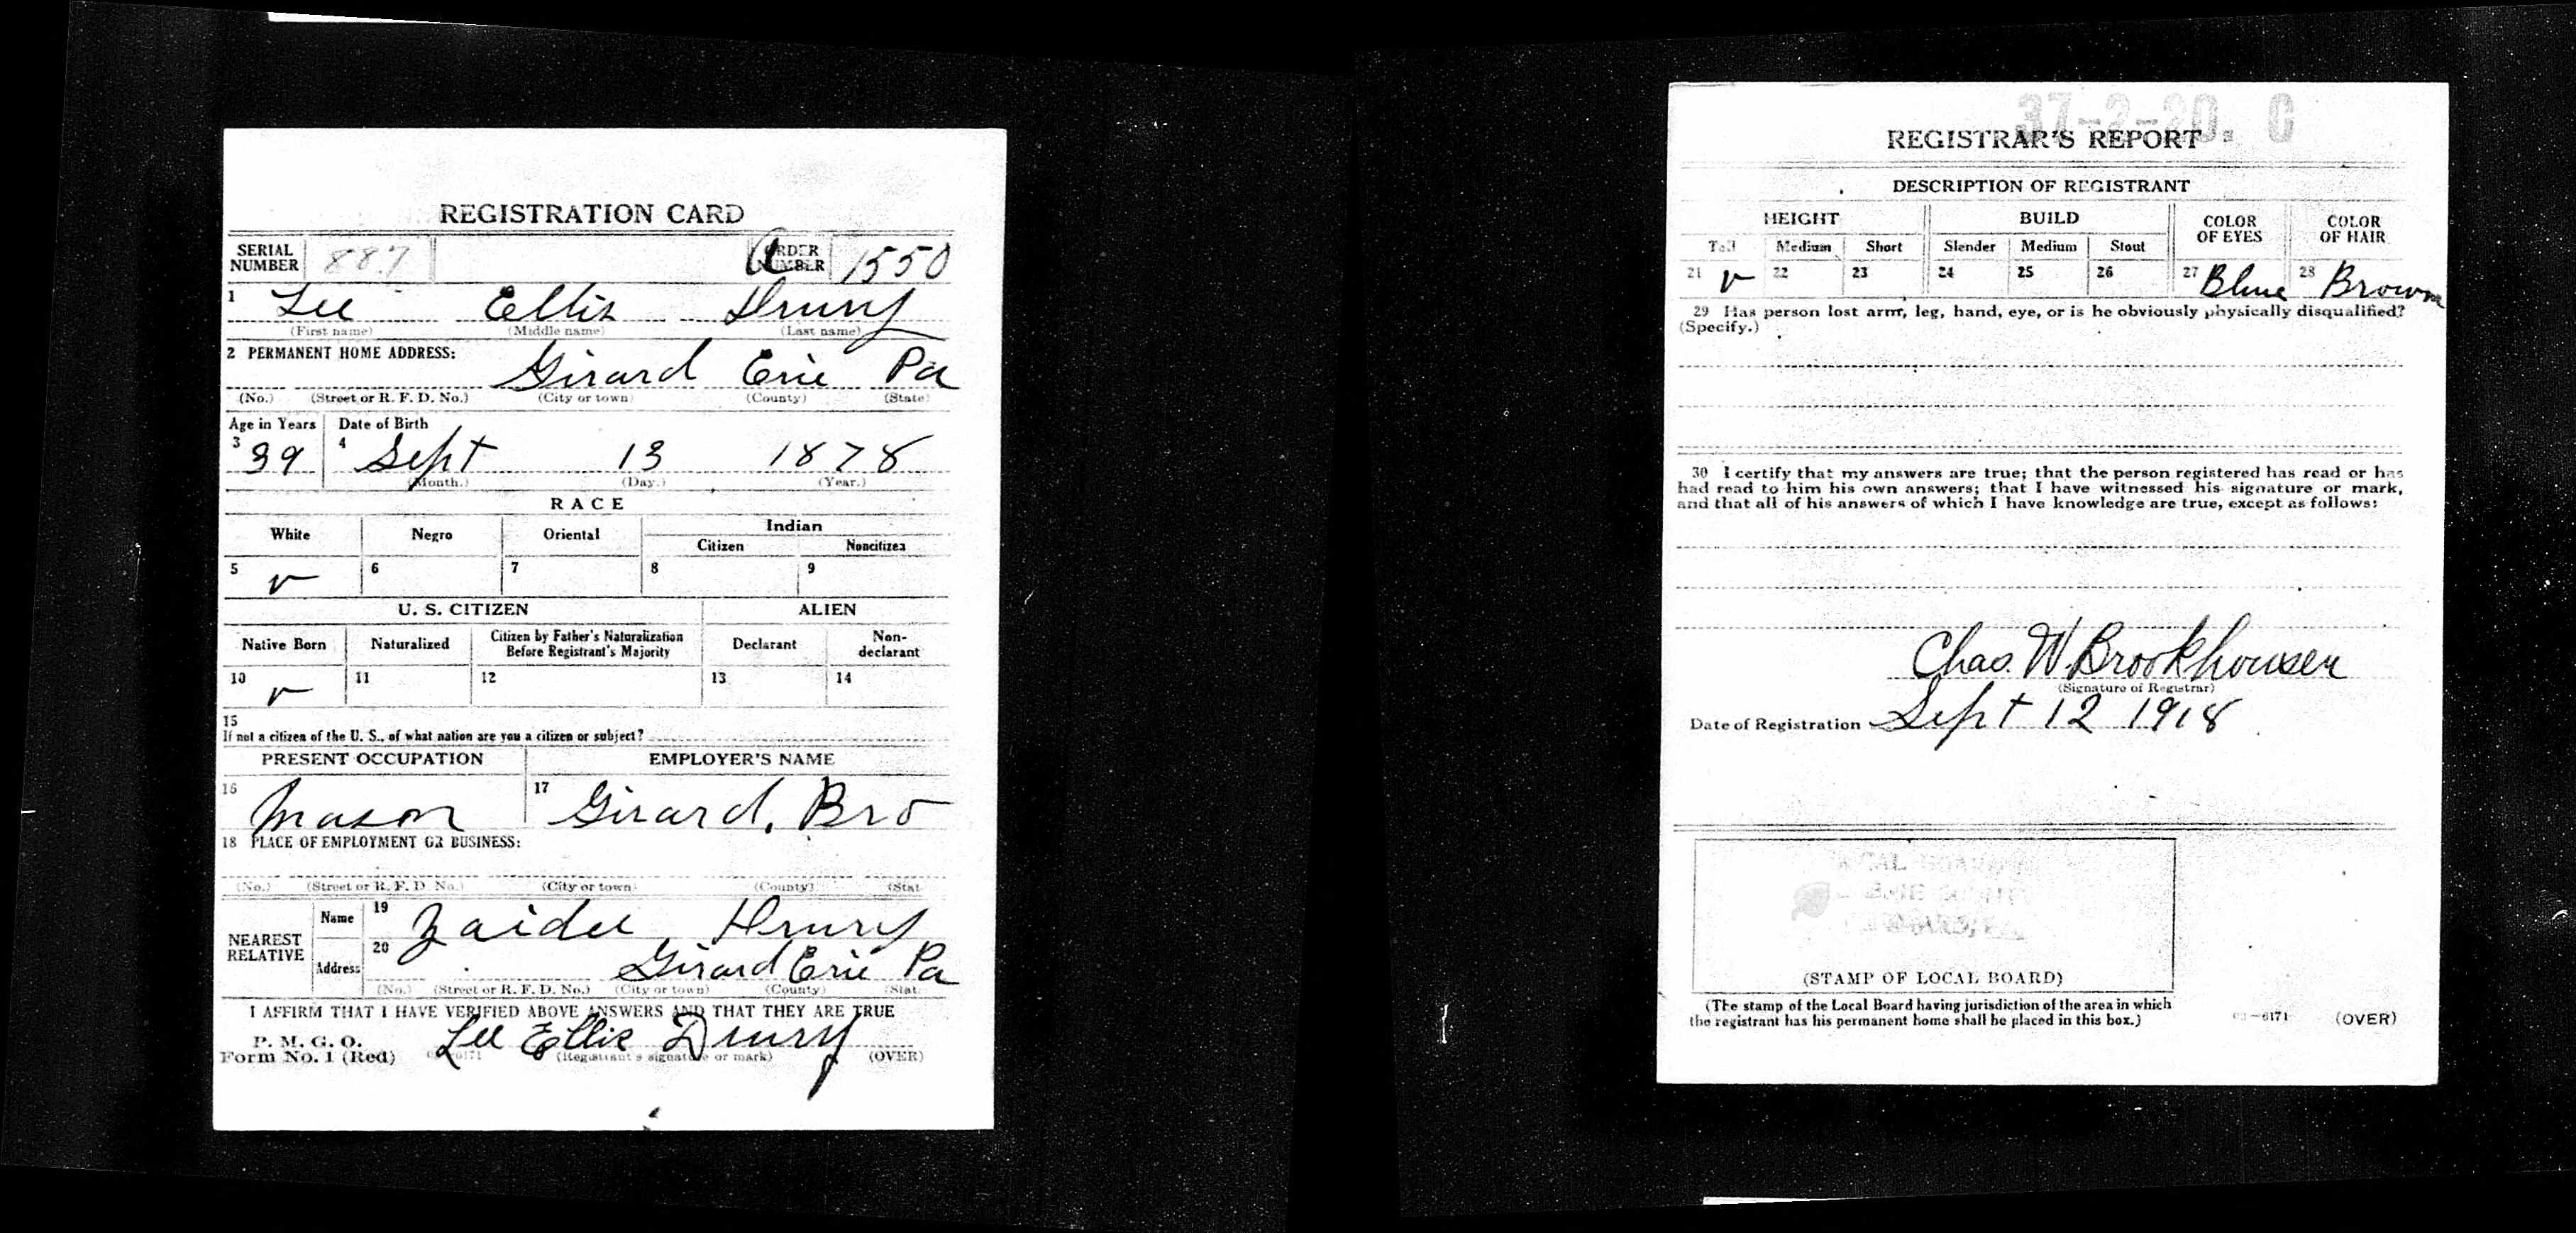 REGISTRATION CARD
SERIAL NUMBER 887 ORDER NUMBER A 1550
1 Lee Ellis Drury
(First name) (Middle name) (Last name)
2 PERMANENT HOME ADDRESS:
Girard Erie Pa
(No.) (Street or R. F. D. No.) (City or town) (County) (State)
Age in Years Date of Birth
3 39 4 Sept 13 1878
(Month.) (Day.) (Year.)
RACE
White Negro Oriental Indian
Citizen Noncitizen
5 v 6 7 8 9
U. S. CITIZEN ALIEN
Native Born Naturalized Citizen by Father's Naturalization Before Registrant's Majority Declarant Non-declarant
10 v 11 12 13 14
15
If not a citizen of the U. S., of what nation are you a citizen or subject?
PRESENT OCCUPATION EMPLOYER'S NAME
16 Mason 17 Girard, Bro
18 PLACE OF EMPLOYMENT OR BUSINESS:
(No.) (Street or R. F. D. No.) (City or town) (County) (Stat
NEAREST RELATIVE Name 19 Zaidee Drury
Address 20 Girard Erie Pa
(No.) (Street or R. F. D. No.) (City or town) (County) (Stat.
I AFFIRM THAT I HAVE VERIFIED ABOVE ANSWERS AND THAT THEY ARE TRUE
P. M. G. O.
Form No. 1 (Red) Lee Ellis Drury
(Registrant's signature or mark) (OVER)
37-2-20. C
REGISTRAR'S REPORT
DESCRIPTION OF REGISTRANT
HEIGHT BUILD COLOR OF EYES COLOR OF HAIR
Tall Medium Short Slender Medium Stout
21 v 22 23 24 25 26 27 Blue 28 Brown
29 Has person lost arm, leg, hand, eye, or is he obviously physically disqualified?
(Specify.)
30 I certify that my answers are true; that the person registered has read or has
had read to him his own answers; that I have witnessed his signature or mark,
and that all of his answers of which I have knowledge are true, except as follows:
Chas. W. Brookhouser
(Signature of Registrar)
Date of Registration Sept 12 1918
(STAMP OF LOCAL BOARD)
(The stamp of the Local Board having jurisdiction of the area in which
the registrant has his permanent home shall be placed in this box.)
(OVER)